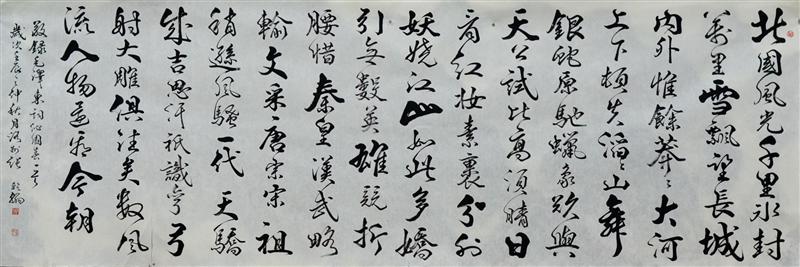 北國風光千里冰封
萬里雪飄望長城
内外惟餘莽〻大河
上下頓失滔〻山舞
銀蛇原馳蠟象欲與
天公試比高須晴日
看紅妝素裹分外
妖嬈江山如此多嬌
引無數英雄競折
腰惜秦皇漢武略
輸文采唐宗宋祖
稍遜風騷一代天驕
成吉思汗祇識彎弓
射大雕俱往矣數風
流人物還看今朝
敬錄毛澤東詞沁園春一首
歲次壬辰仲秋月